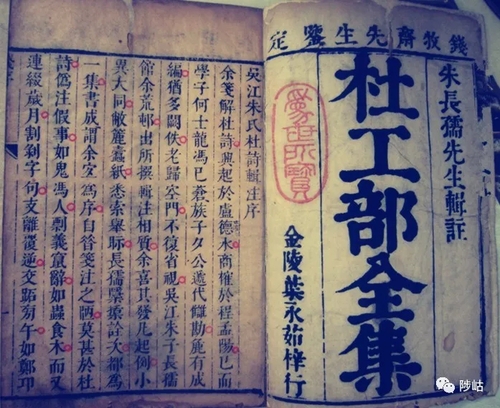 錢牧齋先生鑒定
朱長孺先生輯註
杜工部全集
金陵葉永茹梓行
吳江朱氏杜詩輯注序
余箋解杜詩興起於盧德水商榷於程孟陽已而
學子何士龍馮已蒼族子夕公遞代讎勘麤有成
編猶多闕佚老歸空門不復省視吳江朱子長孺
館余荒邨出所撰輯注相質余喜其發凡起例小
異大同敝簏蠹紙悉索舉畀長孺櫽括詮次都為
一集書成謂余宜為序自昔箋注之陋莫甚於杜
詩偽注假事如鬼馮人剽義竄辭如蟲食木而又
連綴歲月割剝字句支離覆逆交跖旁午如鄭卬
陟岵